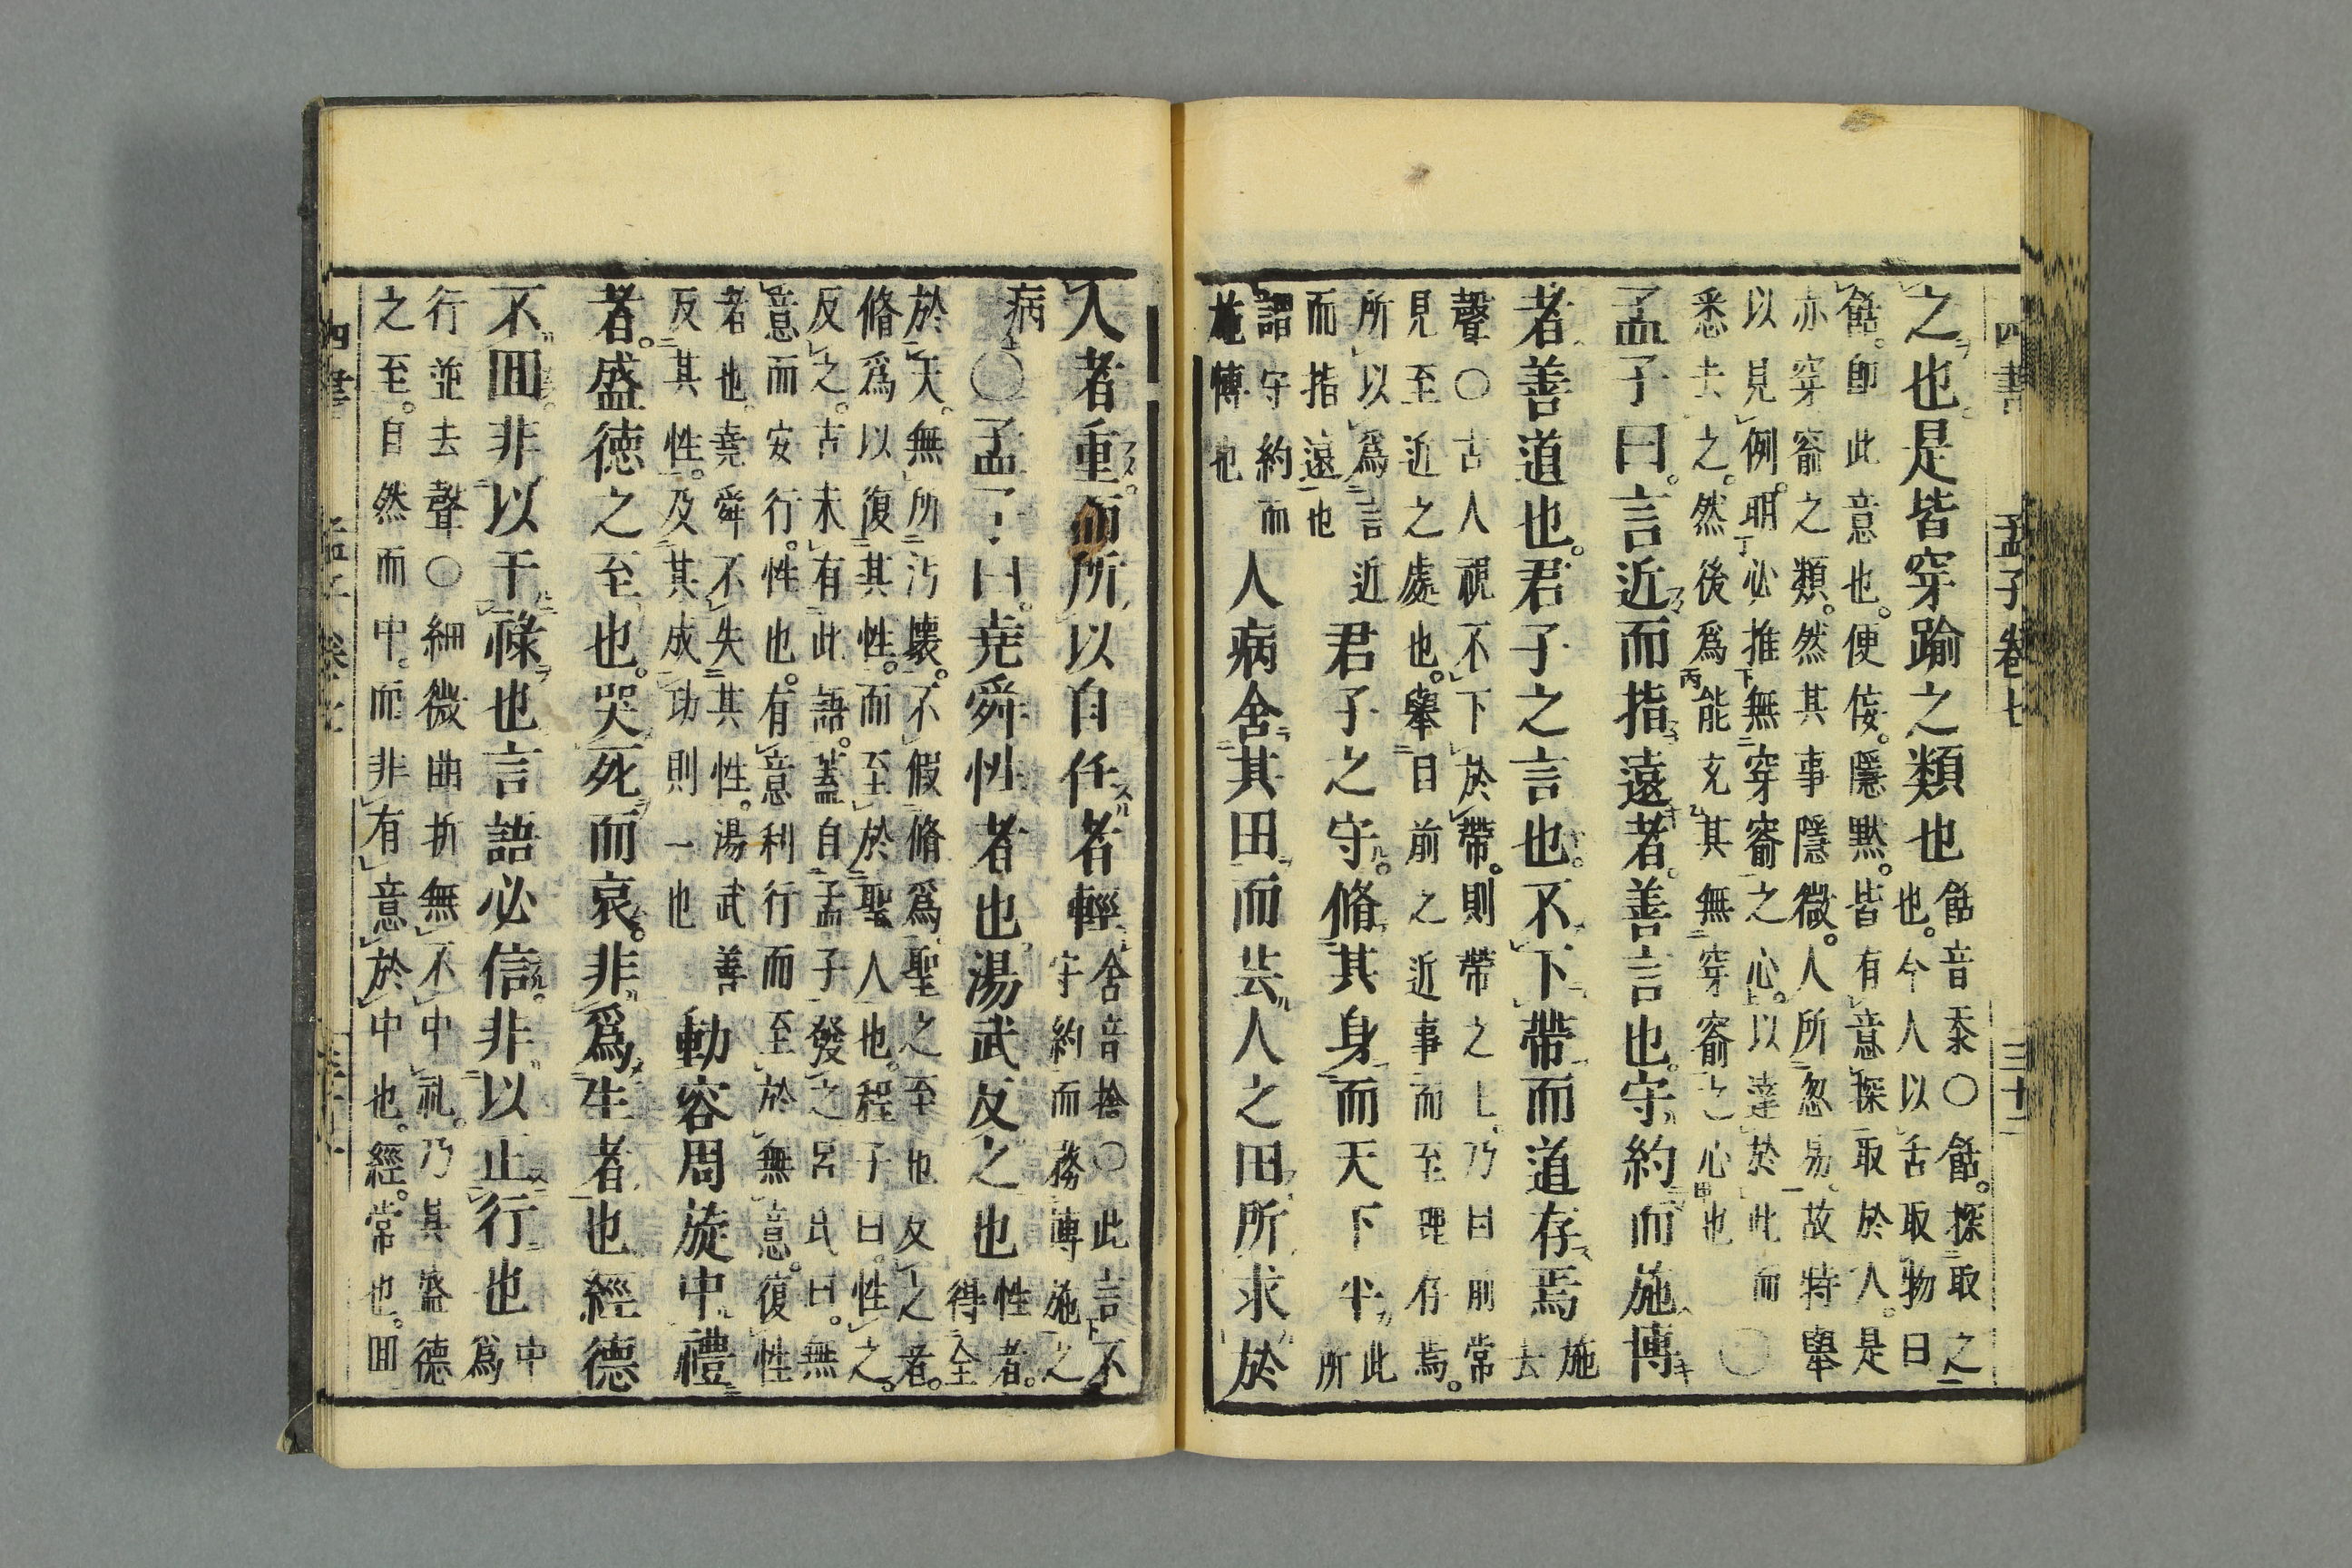 四書 孟子卷七 三十二
之也是皆穿踰之類也 餂音忝○餂探取之
也今人以舌取物曰
餂卽此意也便佞隱默皆有意探取於人是
亦穿窬之類然其事隱微人所忽易故特舉
以見例明必推無穿窬之心以達於此而
悉去之然後爲能充其無穿窬之心也○
孟子曰言近而指遠者善言也守約而施博
者善道也君子之言也不下帶而道存焉 施
去
聲○古人視不下於帶則帶之上乃目前常
見至近之處也舉目前之近事而至理存焉
所以爲言近
而指遠也
君子之守脩其身而天下平 此
所
謂守約而
施博也
人病舍其田而芸人之田所求於
人者重而所以自任者輕 舍音捨○此言不
守約而務博施之
病
○孟子曰堯舜性者也湯武反之也 性者
得全
於天無所汚壞不假脩爲聖之至也反之者
脩爲以復其性而至於聖人也程子曰性之
反之古未有此語蓋自孟子發之呂氏曰無
意而安行性也有意利行而至於無意復性
者也堯舜不失其性湯武善
反其性及其成功則一也
動容周旋中禮
者盛德之至也哭死而哀非爲生者也經德
不囬非以干祿也言語必信非以正行也 中
爲
行並去聲○細微曲折無不中礼乃其盛德
之至自然而中而非有意於中也經常也囬
四書 孟子卷七